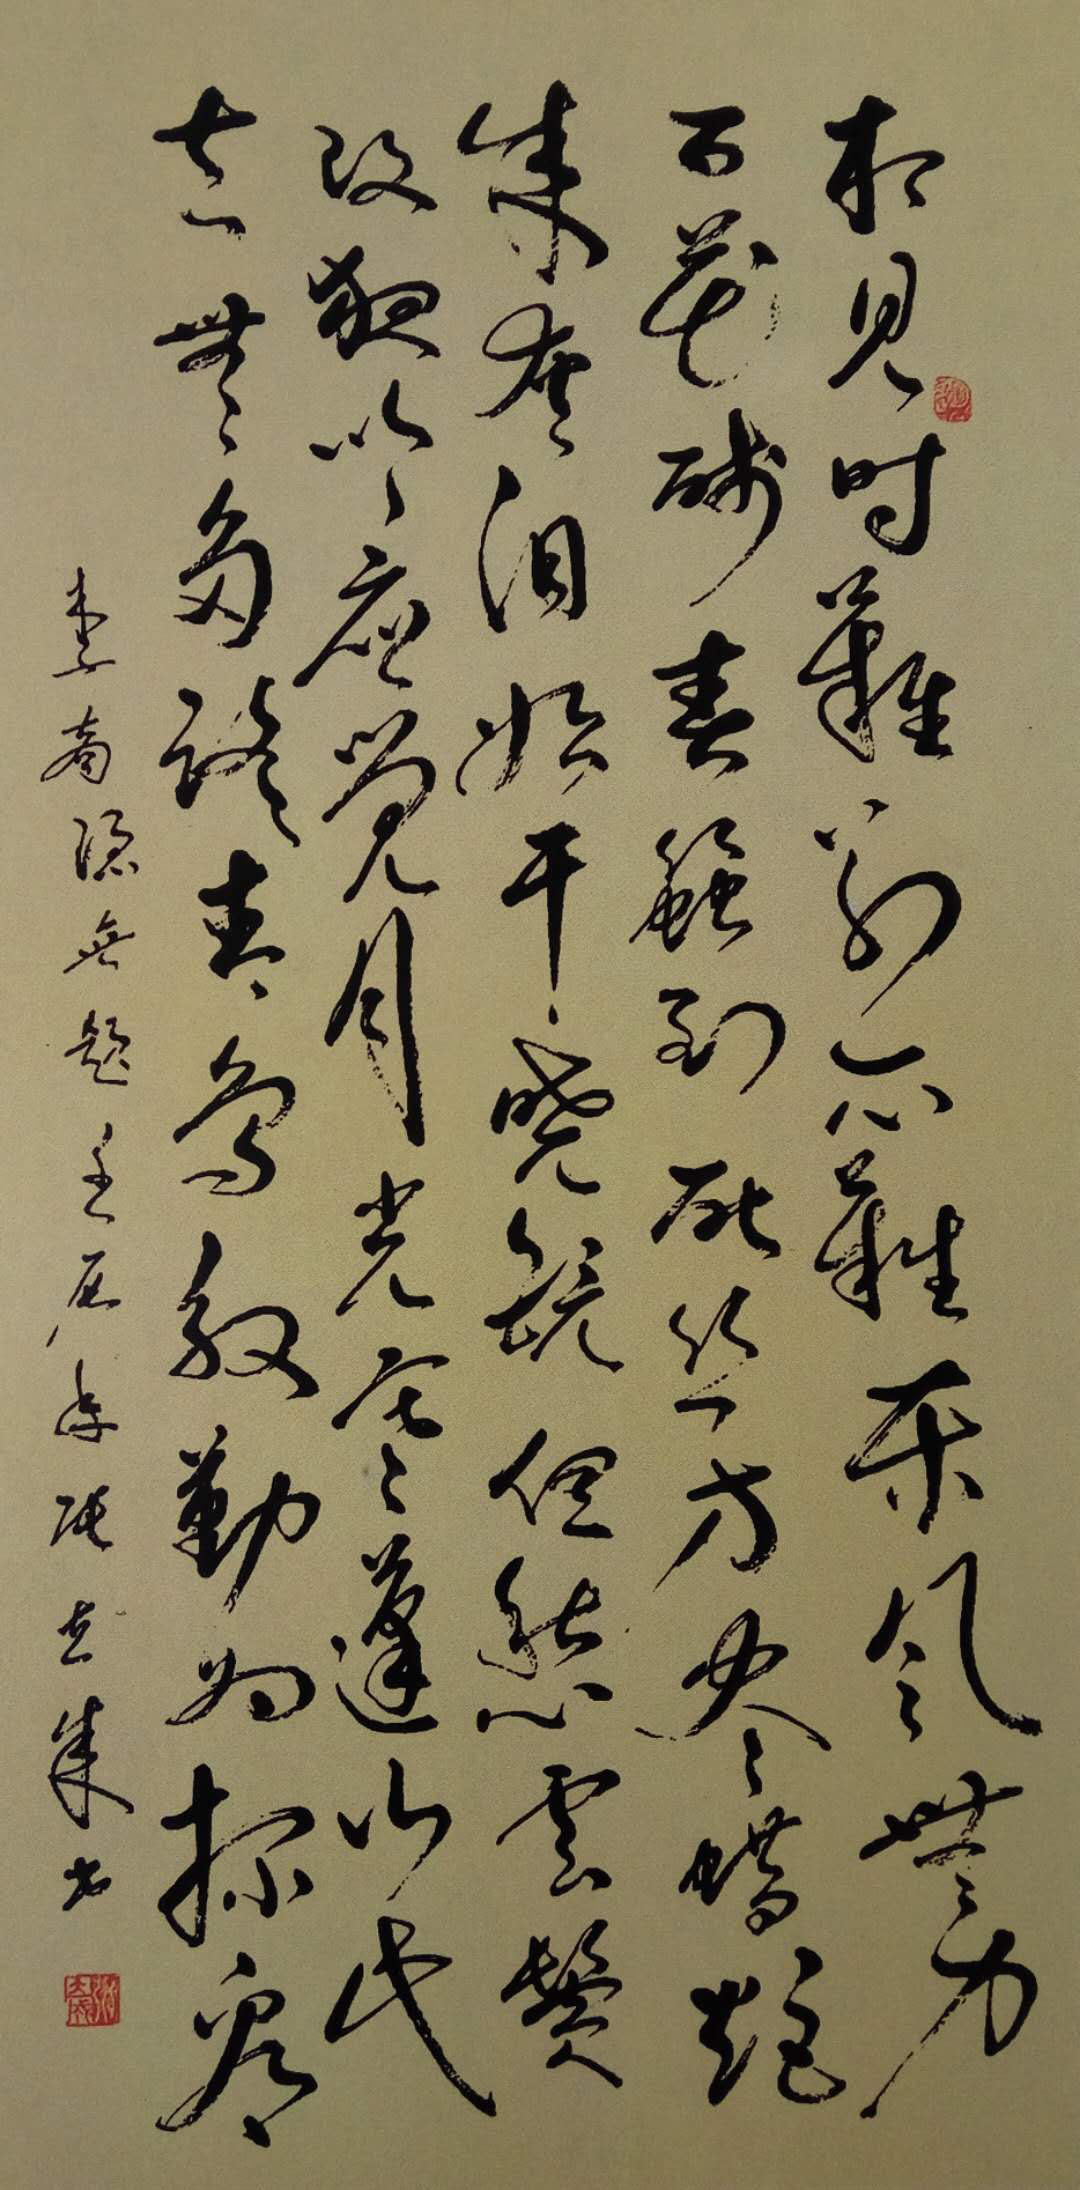 相見时難别亦難東风無力
百花残春蠶到死丝方尽蜡炬
成灰泪始干晓镜但愁雲鬓
改夜吟應觉月光寒蓬山此
去無多路青鸟殷勤为探看
李商隐無题壬辰年张成书